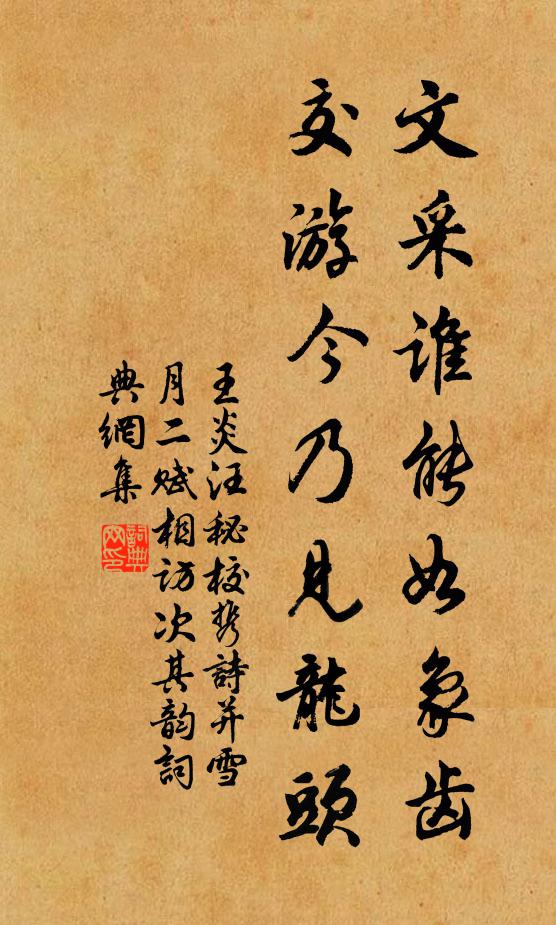 文采谁能如象齿
交游今乃见龍頭
王炎汪秘校携詩并雪
月二赋相访次其韵詞
典網集
詞典
网印